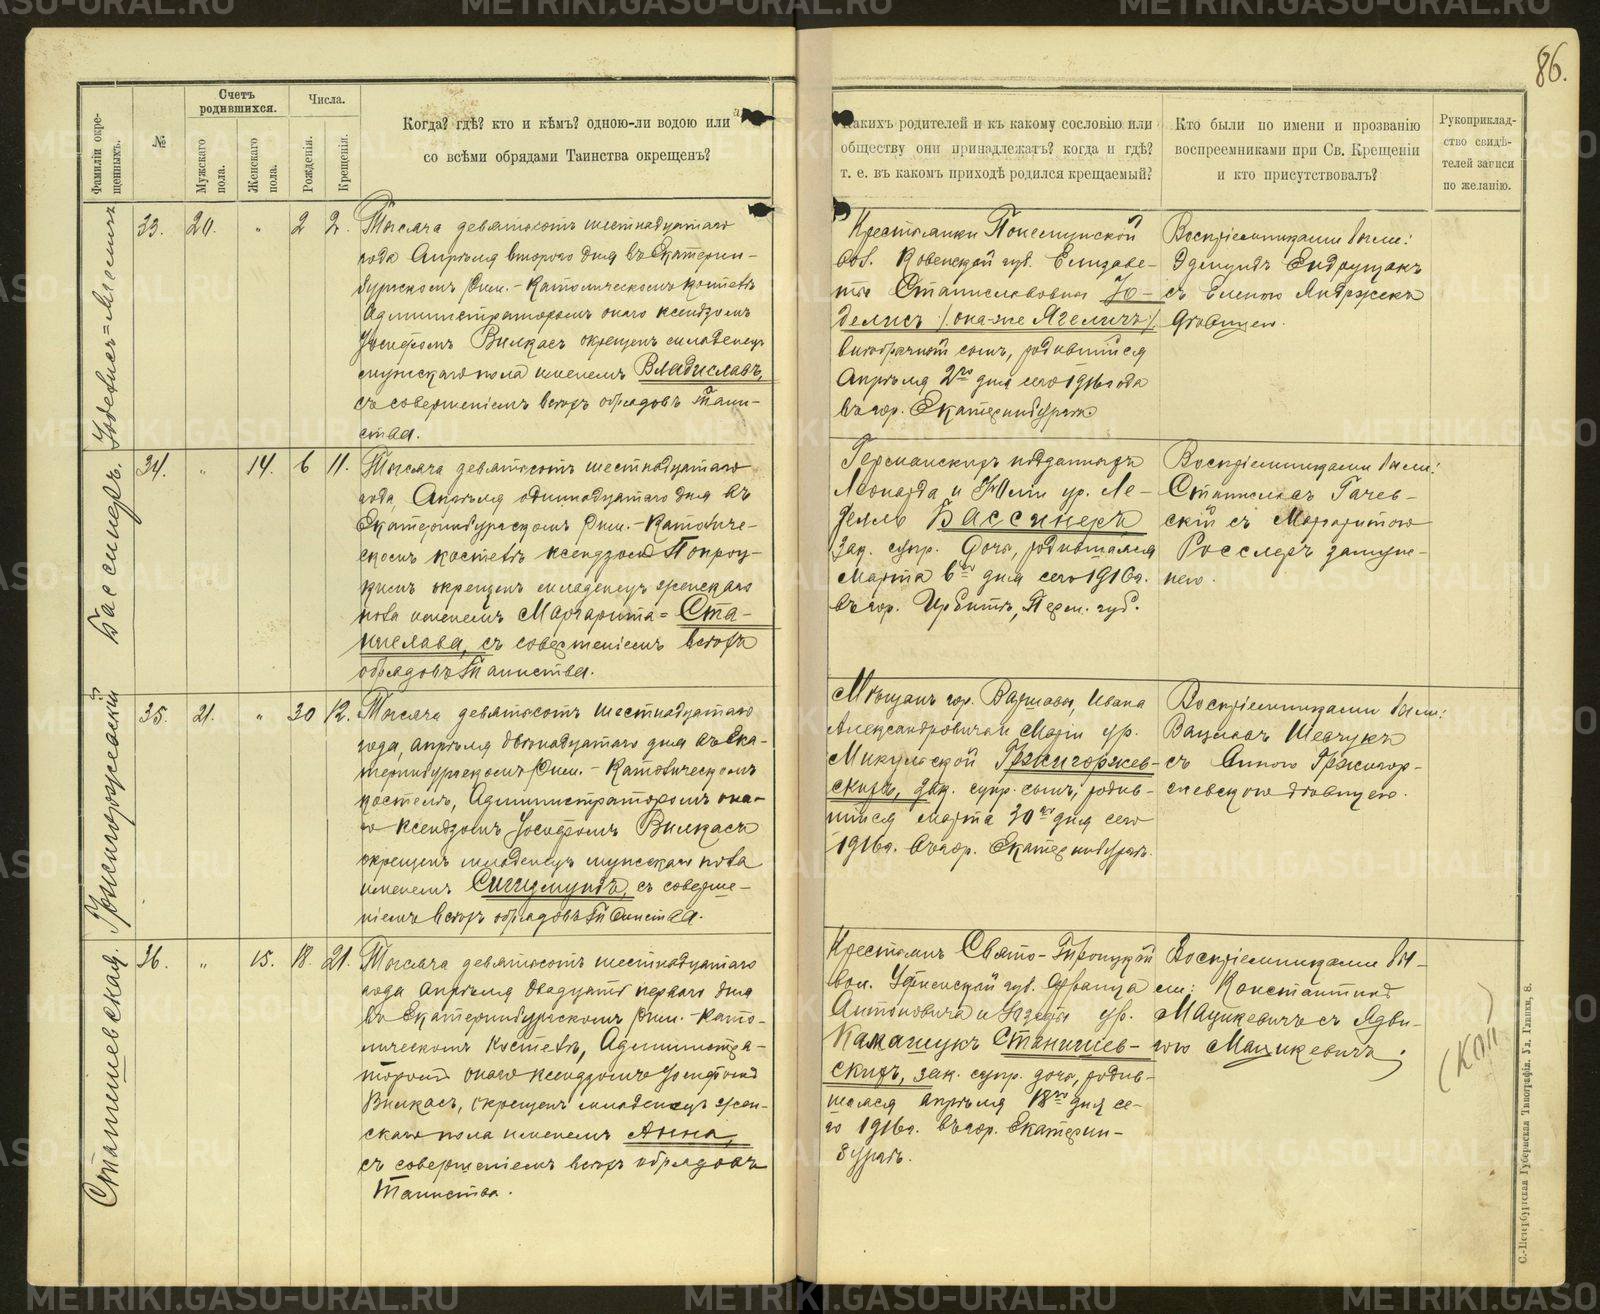 METRIKI.GASO-URAL.RU
86.
Фамиліи окрещенныхъ.
№
Счетъ родившихся.
Мужскаго пола.
Женскаго пола.
Числа.
Рожденія.
Крещенія.
Когда? гдѣ? кто и кѣмъ? одною-ли водою или
со всѣми обрядами Таинства окрещенъ?
какихъ родителей и къ какому сословію или
обществу они принадлежатъ? когда и гдѣ?
т. е. въ какомъ приходѣ родился крещаемый?
Кто были по имени и прозванію
воспреемниками при Св. Крещеніи
и кто присутствовалъ?
Рукоприклад-
ство свидѣ-
телей записи
по желанію.
33. 20. " 2 2.
Тысяча девятьсотъ шестнадцатаго
года Апрѣля второго дня въ Екатерин-
бургскомъ Рим.-Католическомъ костелѣ
Администраторомъ онаго ксендзомъ
Іосифомъ Вилкасъ окрещенъ младенецъ
мужскаго пола именемъ Владиславъ,
съ совершеніемъ всѣхъ обрядовъ Таин-
ства.
Крестьянки
вол. Ковенской губ. Елизаве-
ты Станиславовны Ю-
делисъ /она-же Ягелисъ/
внѣбрачный сынъ, родившійся
Апрѣля 2го дня сего 1916 года
въ гор. Екатеринбургѣ
Воспріемниками были:
Эдмундъ
съ Еленою
дѣвицею.
Бассинеръ.
34. " 14. 6 11.
Тысяча девятьсотъ шестнадцатаго
года, Апрѣля одиннадцатаго дня въ
Екатеринбургскомъ Рим.-Католиче-
скомъ костелѣ ксендзомъ
окрещенъ младенецъ женскаго
пола именемъ Маргарита=Ста-
нислава, съ совершеніемъ всѣхъ
обрядовъ Таинства.
Германскихъ подданныхъ
Леонарда и Юліи ур. Ле-
Бассинеръ
зак. супр. дочь, родившаяся
Марта 6го дня сего 1916 г.
въ гор. Ирбитѣ, Перм. губ.
Воспріемниками были:
Станиславъ Гачев-
скій съ Маргаритою
Росслеръ замуж-
нею.
Гржигоржевскій
35. 21. " 30 12.
Тысяча девятьсотъ шестнадцатаго
года, апрѣля двѣнадцатаго дня въ Ека-
теринбургскомъ Рим.-Католическомъ
костелѣ, Администраторомъ она-
го ксендзомъ Іосифомъ Вилкасъ
окрещенъ младенецъ мужскаго пола
именемъ Сигизмундъ, съ соверше-
ніемъ всѣхъ обрядовъ Таинства.
Мѣщанъ гор. Варшавы, Ивана
Александровича и Маріи ур.
Микульской Гржигоржев-
скихъ, зак. супр. сынъ, родив-
шійся марта 30го дня сего
1916 г. въ гор. Екатеринбургѣ.
Воспріемниками были:
Вацлавъ Шевчукъ
съ Анною Гржигор-
жевскою дѣвицею.
Станишевская.
36. " 15. 18. 21.
Тысяча девятьсотъ шестнадцатаго
года апрѣля двадцать перваго дня
въ Екатеринбургскомъ Рим.-Като-
лическомъ костелѣ, Администра-
торомъ онаго ксендзомъ Іосифомъ
Вилкасъ, окрещенъ младенецъ жен-
скаго пола именемъ Анна,
съ совершеніемъ всѣхъ обрядовъ
Таинства.
Крестьянъ Свято-Троицкой
вол. Уфимской губ. Франца
Антоновича и ур.
Камашукъ Станишев-
скихъ, зак. супр. дочь, родив-
шаяся апрѣля 18го дня се-
го 1916 г. въ гор. Екатерин-
бургѣ.
Воспріемниками бы-
ли: Константинъ
Мацкевичъ съ Ядви-
гою Мацкевичъ.
(коп)
С.-Петербургская Губернская Типографія.